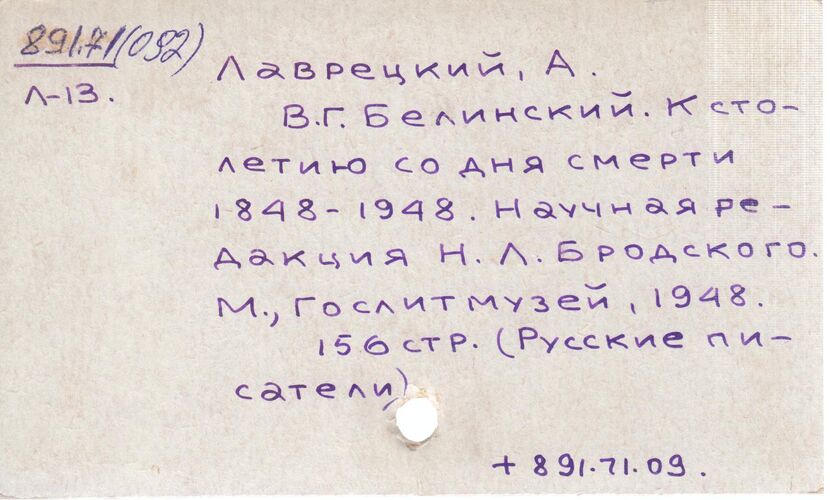 891.71(092)
Л-13.
Лаврецкий, А.
В.Г. Белинский. К сто-
летию со дня смерти
1848-1948. Научная ре-
дакция Н. Л. Бродского.
М., Гослитмузей, 1948.
156 стр. (Русские пи-
сатели)
+ 891.71.09.